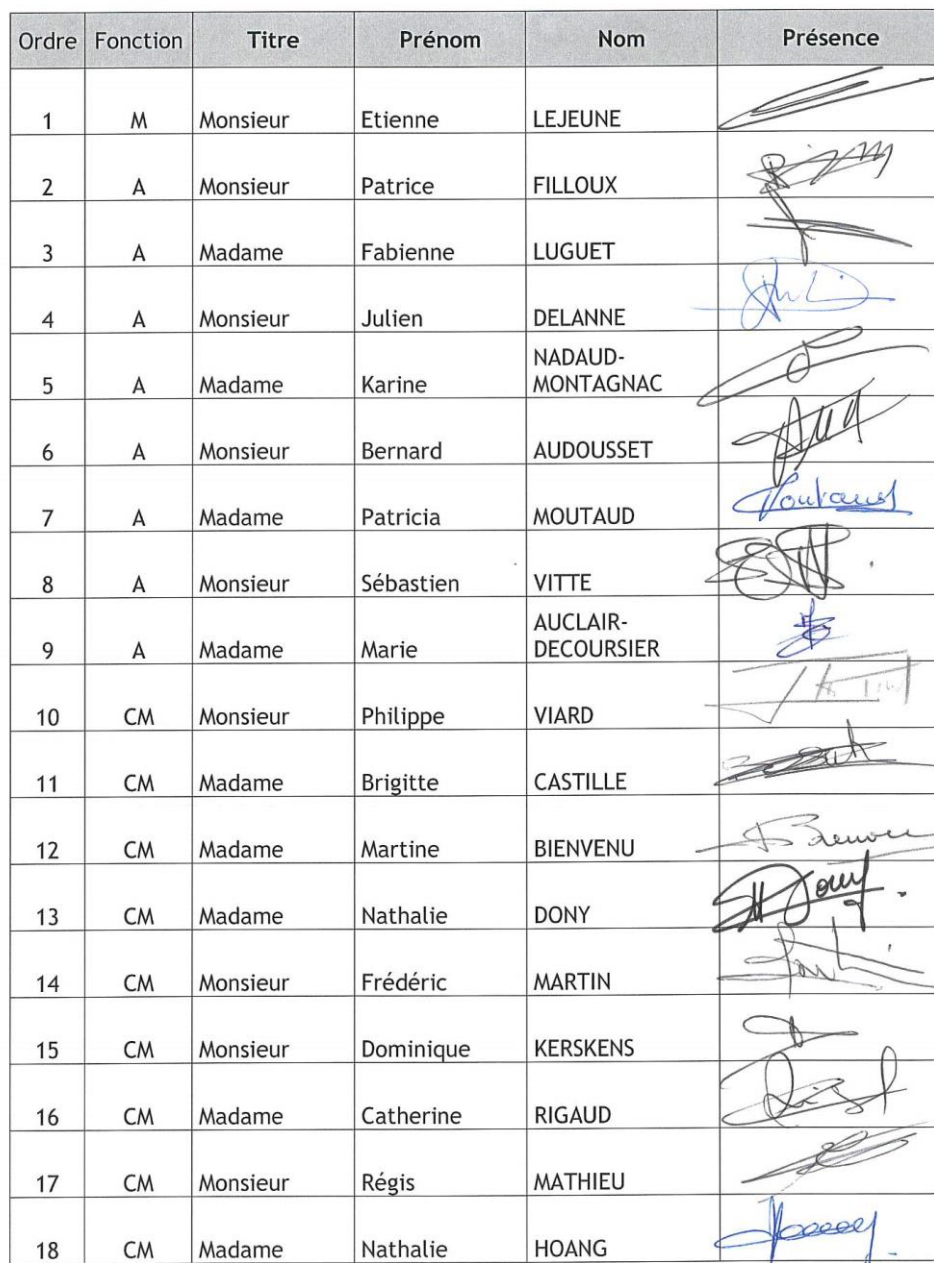 Ordre Fonction Titre Prénom Nom Présence
1 M Monsieur Etienne LEJEUNE
2 A Monsieur Patrice FILLOUX
3 A Madame Fabienne LUGUET
4 A Monsieur Julien DELANNE
5 A Madame Karine NADAUD-
MONTAGNAC
6 A Monsieur Bernard AUDOUSSET
7 A Madame Patricia MOUTAUD
8 A Monsieur Sébastien VITTE
9 A Madame Marie AUCLAIR-
DECOURSIER
10 CM Monsieur Philippe VIARD
11 CM Madame Brigitte CASTILLE
12 CM Madame Martine BIENVENU
13 CM Madame Nathalie DONY
14 CM Monsieur Frédéric MARTIN
15 CM Monsieur Dominique KERSKENS
16 CM Madame Catherine RIGAUD
17 CM Monsieur Régis MATHIEU
18 CM Madame Nathalie HOANG